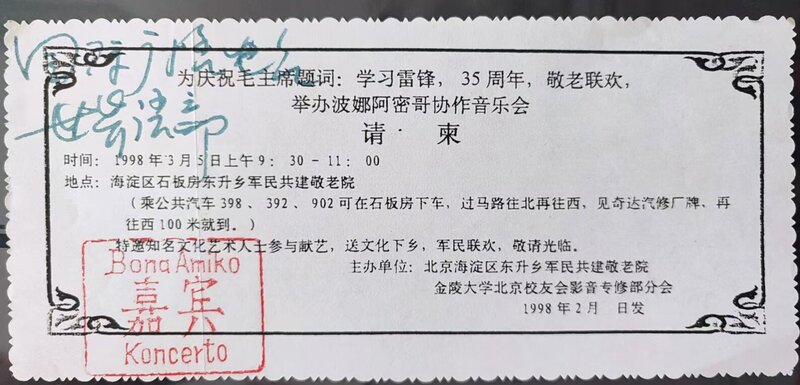 国际广播电台
世界语部
为庆祝毛主席题词：学习雷锋，35周年，敬老联欢，
举办波娜阿密哥协作音乐会
请·柬
时间：1998年3月5日上午9：30－11：00
地点：海淀区石板房东升乡军民共建敬老院
（乘公共汽车398、392、902可在石板房下车，过马路往北再往西，见奇达汽修厂牌，再
往西100米就到。）
特邀知名文化艺术人士参与献艺，送文化下乡，军民联欢，敬请光临。
主办单位：北京海淀区东升乡军民共建敬老院
金陵大学北京校友会影音专修部分会
1998年2月　日发
Bona Amiko
嘉宾
Koncerto